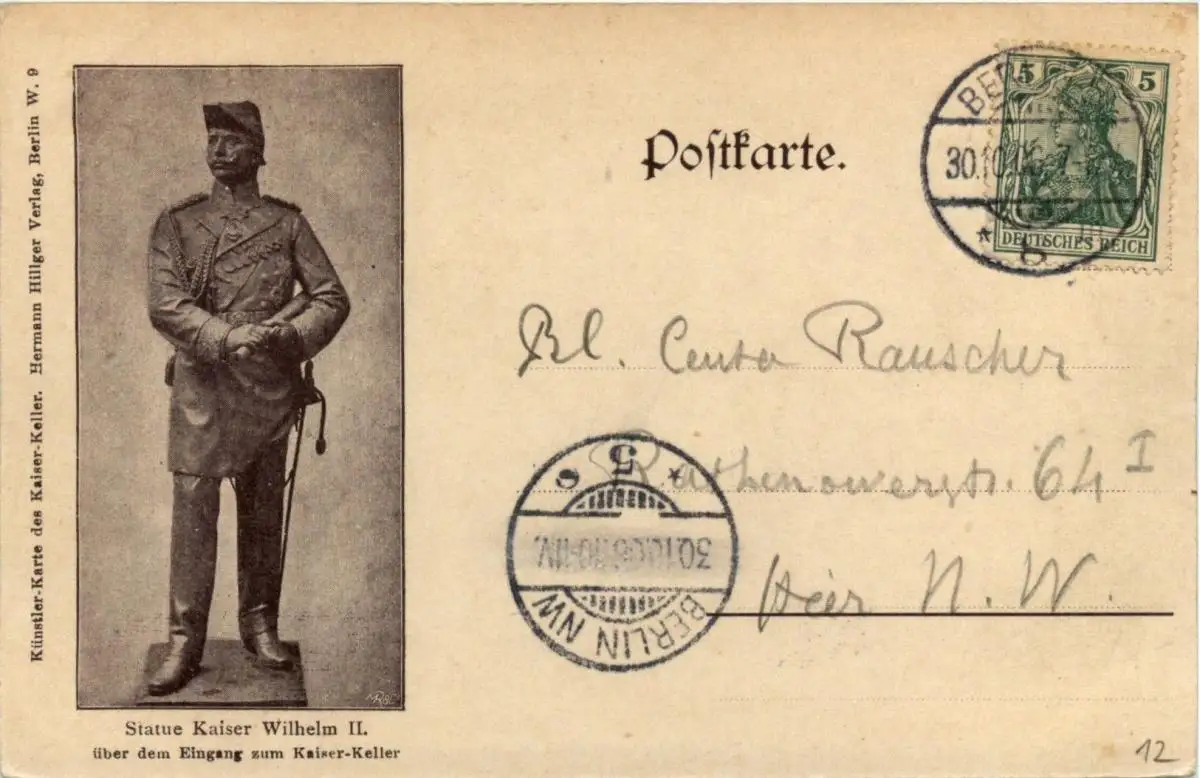 Künstler-Karte des Kaiser-Keller. Hermann Hillger Verlag, Berlin W. 9
Statue Kaiser Wilhelm II.
über dem Eingang zum Kaiser-Keller
Postkarte.
5 5
DEUTSCHES REICH
30.10.06. 7
b
Rauscher
Rathenowerstr. 64 I
Hier N. W.
5 e
30.10.06.
BERLIN NW
12